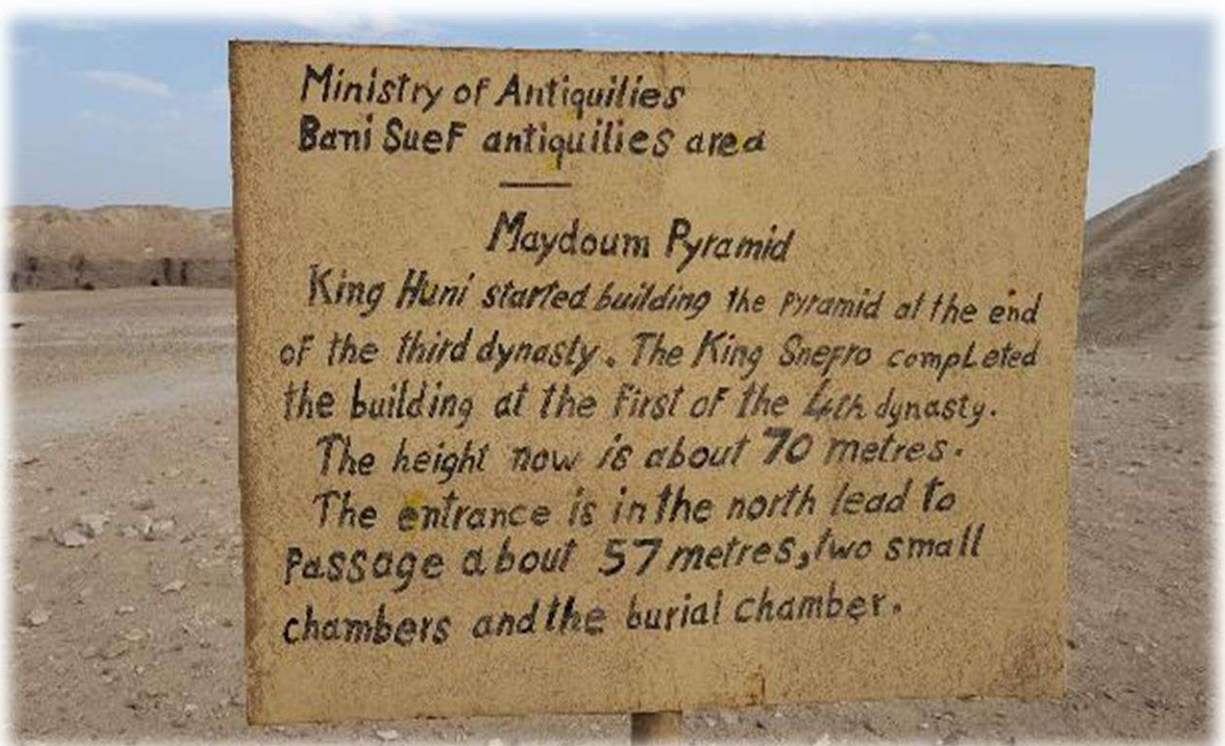 Ministry of Antiquilies
Bani Suef antiquilies area
Maydoum Pyramid
King Huni started building the pyramid at the end
of the third dynasty. The King Snefro completed
the building at the first of the 4th dynasty.
The height now is about 70 metres.
The entrance is in the north lead to
Passage about 57 metres, two small
chambers and the burial chamber.